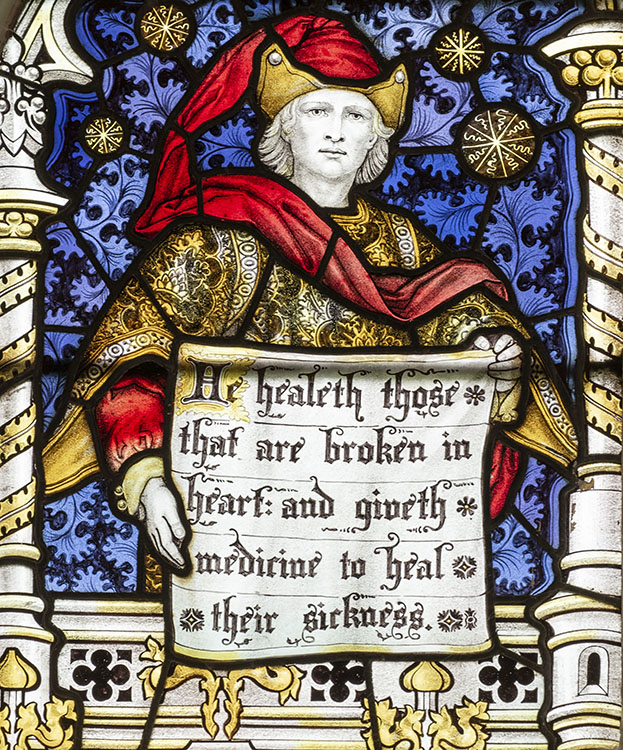 He healeth those
that are broken in
heart: and giveth
medicine to heal
their sickness.